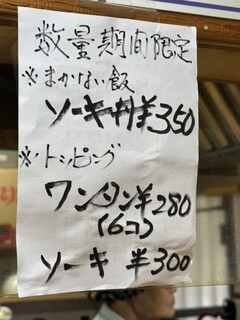 数量期間限定
※まかない飯
ソーキ丼¥350
※トッピング
ワンタン¥280
(6コ)
ソーキ ¥300